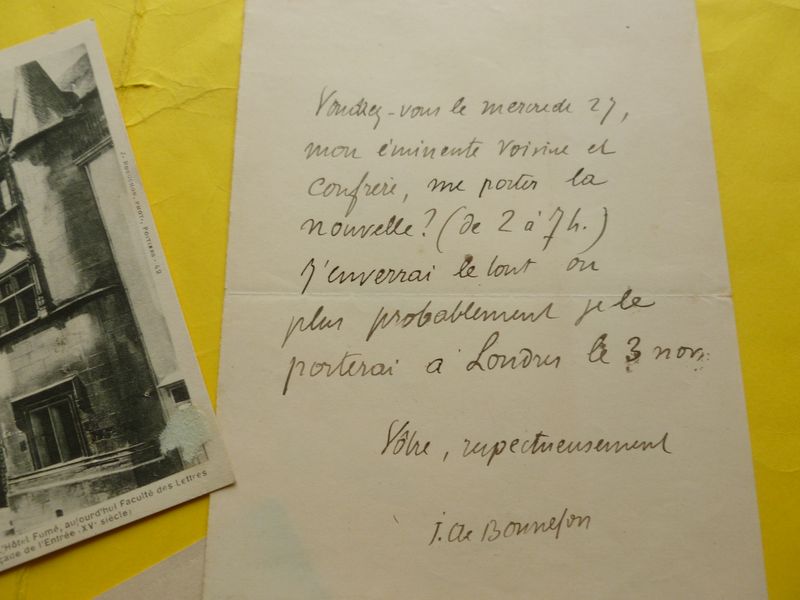 Voudrez-vous le mercredi 27,
mon éminente voisine et
confrère, me porter la
nouvelle? (de 2 à 7h.)
J'enverrai le tout ou
plus probablement je le
porterai à Londres le 3 nov.
Vôtre, respectueusement
J. de Bonnefon
PHOT. POITIERS
L'Hôtel Fumé, aujourd'hui Faculté des Lettres
Façade de l'Entrée (XVe siècle)